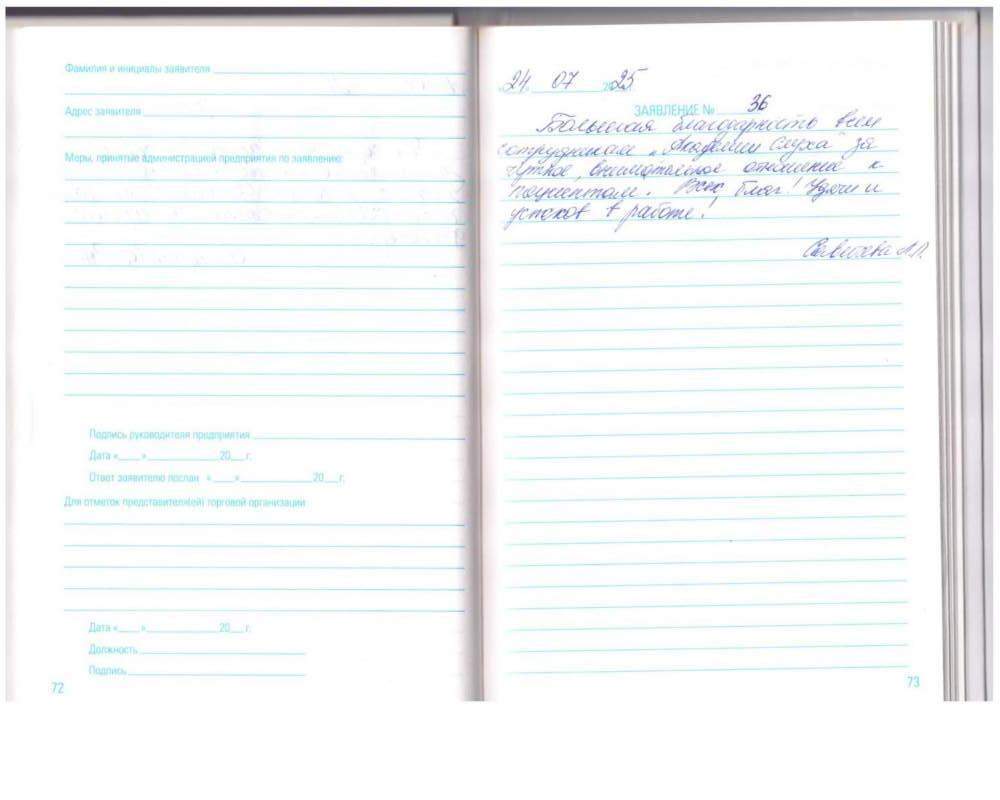 Фамилия и инициалы заявителя
Адрес заявителя
Меры, принятые администрацией предприятия по заявлению:
Подпись руководителя предприятия
Дата «____»____________20__г.
Ответ заявителю послан «____»____________20__г.
Для отметок представителя(ей) торговой организации
Дата «____»____________20__г.
Должность
Подпись
72
24. 07 2025
ЗАЯВЛЕНИЕ № 36
Большая благодарность всем
сотрудникам „Академии слуха" за
чуткое, внимательное отношение к
пациентам. Всех благ! Удачи и
успехов в работе!
73